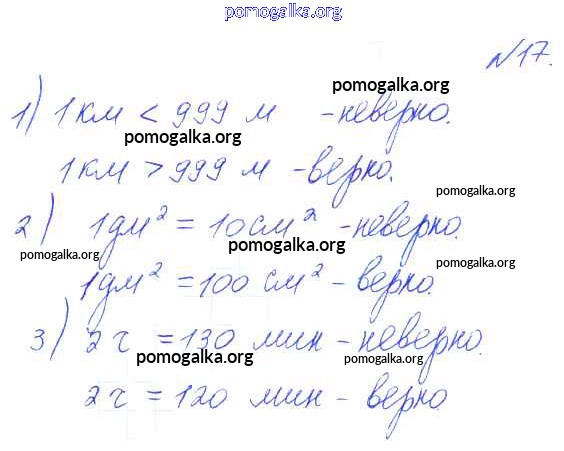 pomogalka.org
№17.
pomogalka.org
1) 1 км < 999 м - неверно.
pomogalka.org
1 км > 999 м - верно.
pomogalka.org
2) 1 дм² = 10 см² - неверно.
pomogalka.org
pomogalka.org
1 дм² = 100 см² - верно.
pomogalka.org
3) 2 ч = 130 мин - неверно.
pomogalka.org
pomogalka.org
2 ч = 120 мин - верно